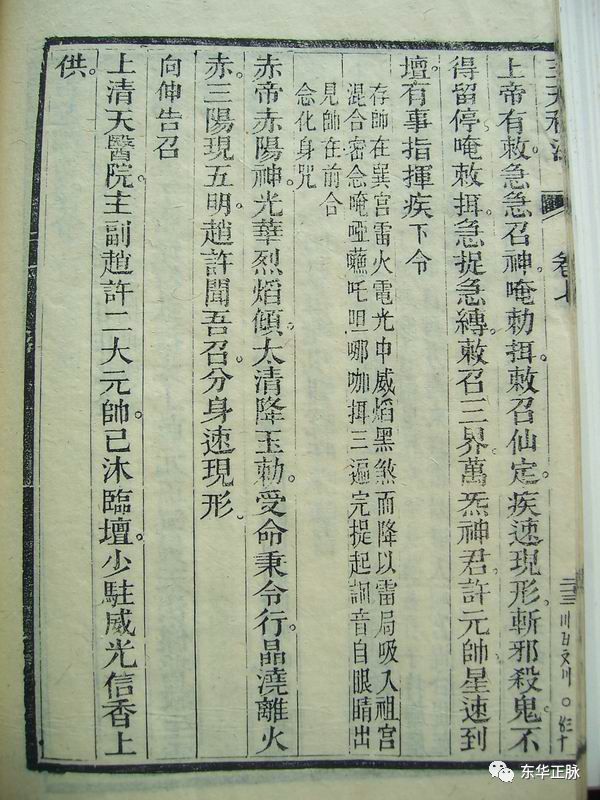 卷七
上帝有敕。急急召神。唵勅揖。敕召仙定。疾速現形。斬邪殺鬼。不
得留停。唵敕揖。急捉急縛。敕召三界萬炁神君。許元帥。星速到
壇。有事指揮。疾下令
存師在巽宮雷火電光中威焰黑煞而降以雷局吸入祖宮
混合密念唵啞囌吒呾哪咖揖三遍完提起訶音自眼睛出
見師在前合
念化身咒
赤帝赤陽。神光華烈。焰傾太清。降玉勅。受命秉令行。晶澆離火
赤。三陽現五明。趙許聞吾召。分身速現形
向伸告召
上清天醫院。主副趙許二大元帥。已沐臨壇。少駐威光。信香上
供。
东华正脉